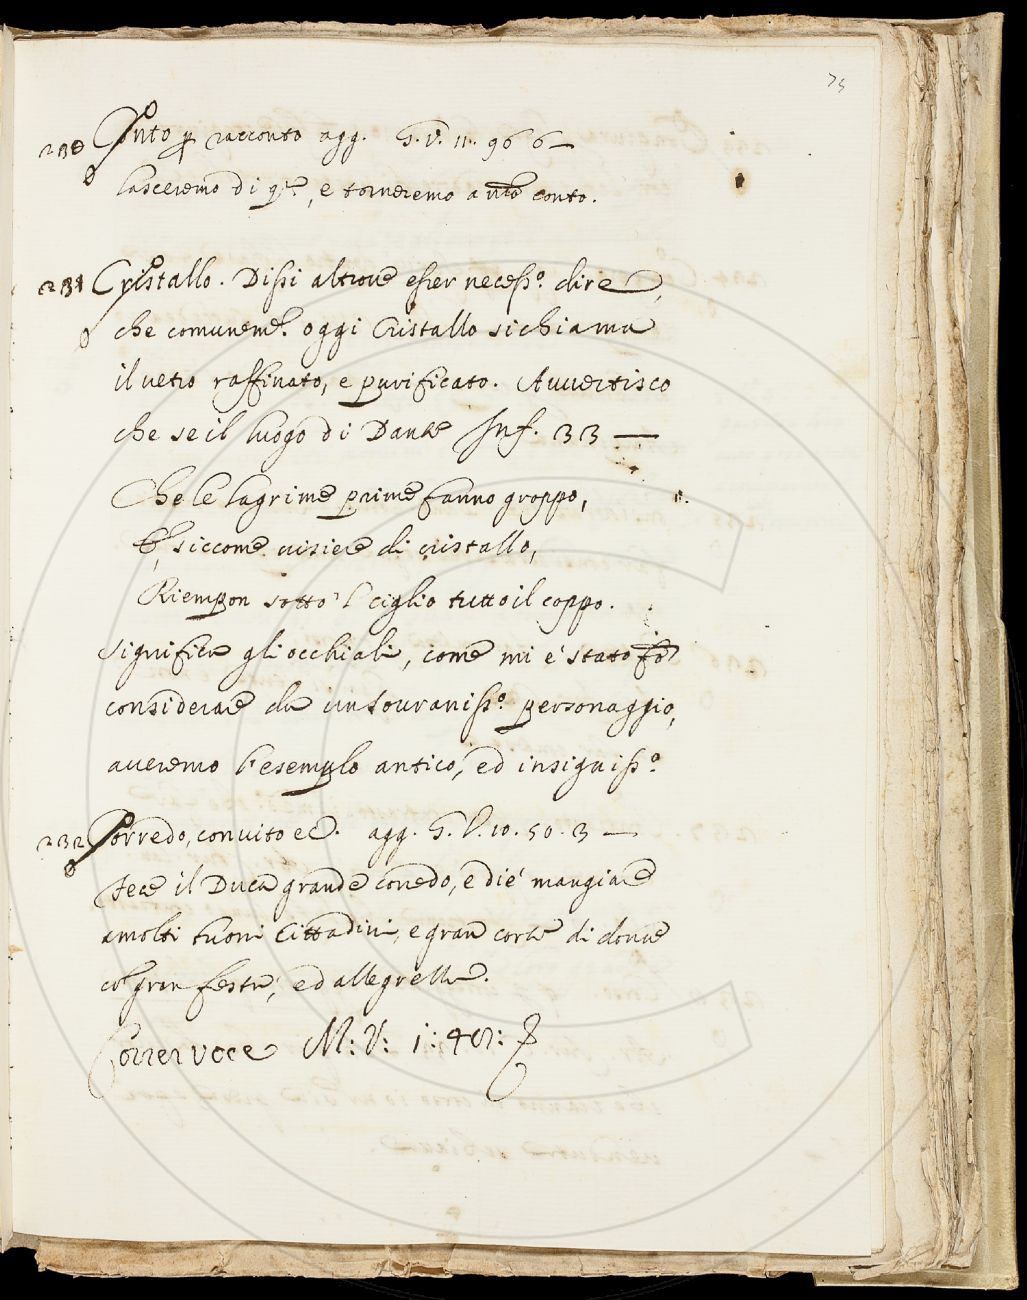 75
230 Conto ꝑ racconto agg. G. V. 11. 96 6 —
lasceremo di qͣ, e torneremo a nr̃o conto.
231 Cristallo. Dissi altrove esser necessº. dire,
che comuneme.ͭ oggi Cristallo si chiama
il vetro raffinato, e purificato. Avvertisco
che se il luogo di Dante Inf. 33 —
Che le lagrime prime fanno groppo,
E, siccome visiere di cristallo,
Riempon sotto 'l ciglio tutto il coppo.
significa gli occhiali, come mi é stato
considerare da un souranissº. personaggio,
averemo l'esemplo antico, ed insignissº.
232 Corredo, convito ec. agg. G. V. 10. 50. 3 —
Fece il Duca grande corredo, e dié mangiare
a molti buoni Cittadini, e gran corte di donne
cō gran festa, ed allegrezza.
Correr voce M: V: 1: